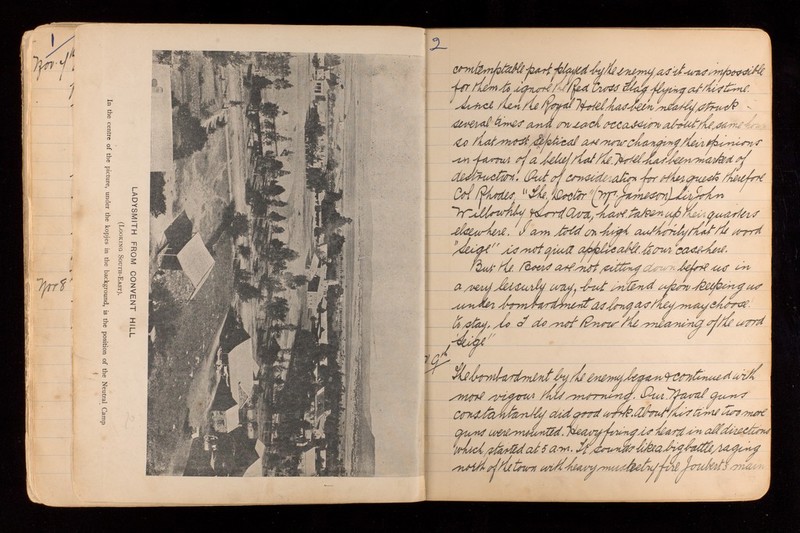 1
Nov. 7th
Nov 8
LADYSMITH FROM CONVENT HILL
(LOOKING SOUTH-EAST).
In the centre of the picture, under the kopjes in the background, is the position of the Neutral Camp
2
comtemptable part played by the enemy, as it was impossible
for them to ignore the Red Cross Flag flying at this time.
Since then the Royal Hotel has been nearly struck
several times and on each occassion about the same
so that most septical are now changing their opinions
in favour of a belief that the Hotel has been marked of
destruction. Out of consideration for other guests therefore
Col Rhodes, "The Doctor" (Mr Jameson) Sir John
Willowhby & Lord Ava, have taken up their quarters
elsewhere. I am told on high authority that the word
"Seige" is not quite applicable to our case here.
But the Boers are not sitting down before us in
a very leisurly way, but intend upon keeping us
under bombardment as long as they may choose
to stay. So I do not know the meaning of the word
"Seige"
9th
The bombardment by the enemy began & continued with
more vigour this morning. Our Naval guns
constantantly did good work. About this time two more
guns were mounted. Heavy firing is heard in all directions
which started at 5 am. It sounds like a big battle raging
north of the town with heavy musketry fire Joubert's main